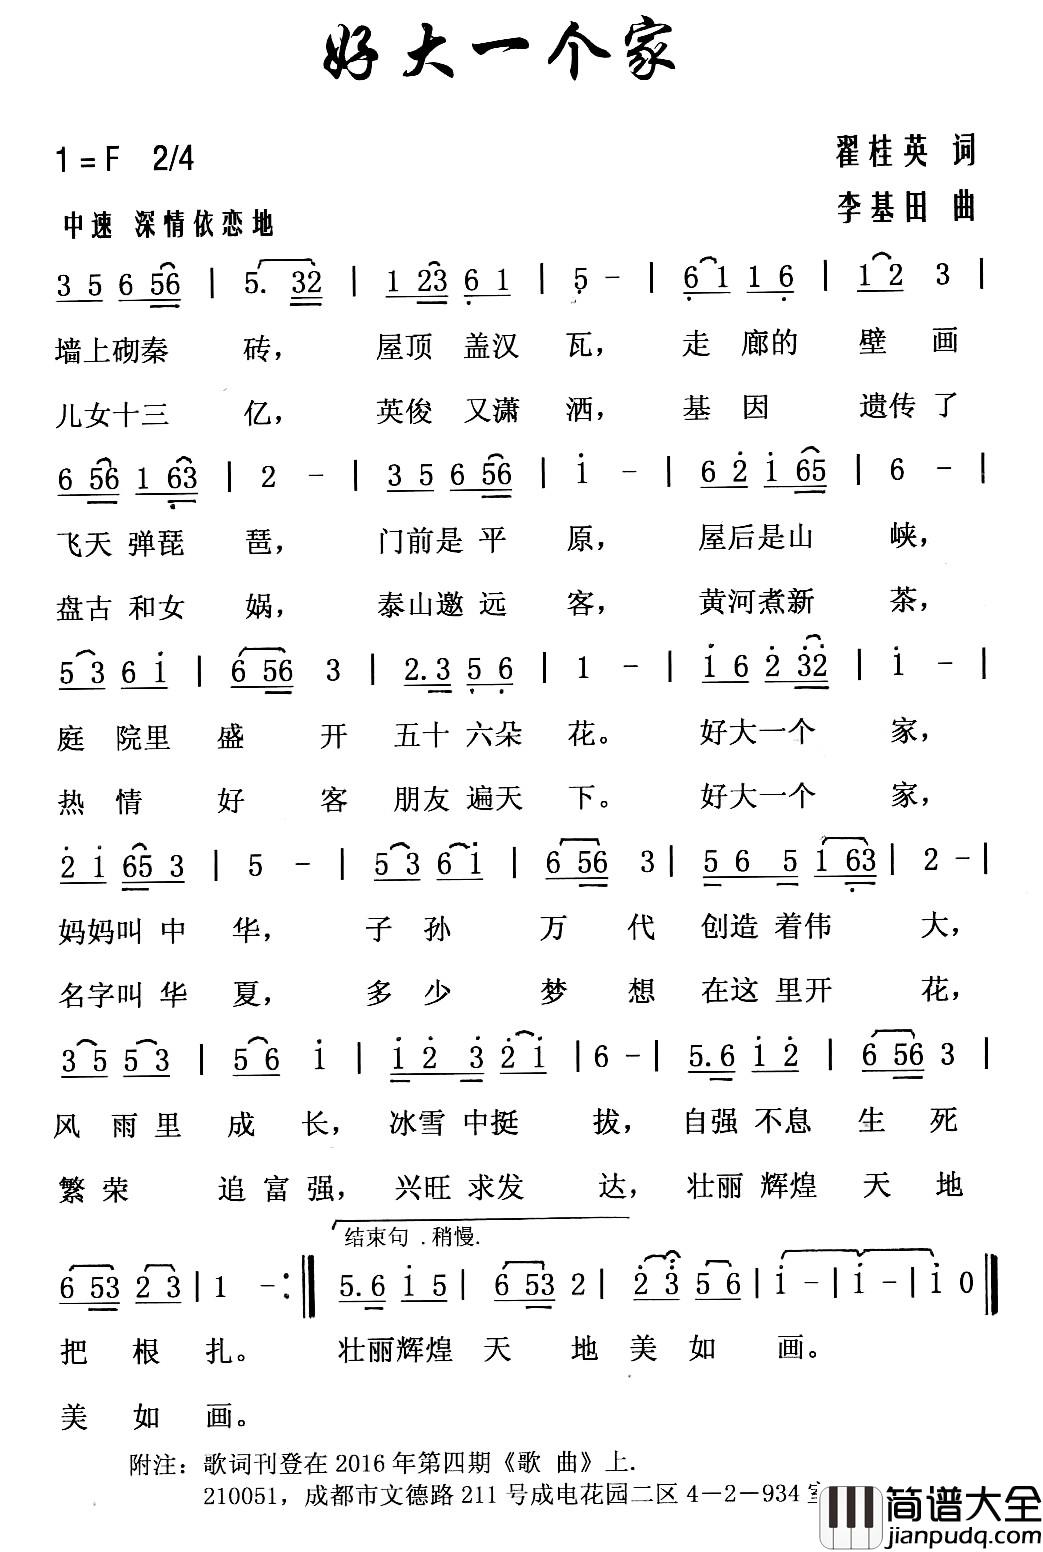 好大一个家
1=F 2/4
翟桂英 词
中速 深情依恋地
李基田 曲
3 5 6 56 | 5. 32 | 1 23 6 1 | 5 - | 6 1 1 6 | 1 2 3 |
墙上砌秦 砖， 屋顶 盖汉 瓦， 走 廊的 壁 画
儿女十三 亿， 英俊 又潇 洒， 基 因 遗传了
6 56 1 63 | 2 - | 3 5 6 56 | i - | 6 2 i 65 | 6 - |
飞天 弹琵 琶， 门前是 平 原， 屋后是山 峡，
盘古 和女 娲， 泰山邀 远 客， 黄河煮新 茶，
5 3 6 i | 6 56 3 | 2.3 5 6 | 1 - | i 6 2 32 | i - |
庭 院里 盛 开 五十 六朵 花。 好大一个 家，
热 情 好 客 朋友 遍天 下。 好大一个 家，
2 i 65 3 | 5 - | 5 3 6 i | 6 56 3 | 5 6 5 1 63 | 2 - |
妈妈叫 中 华， 子 孙 万 代 创造 着伟 大，
名字叫 华 夏， 多 少 梦 想 在这 里开 花，
3 5 5 3 | 5 6 i | i 2 3 2 i | 6 - | 5.6 i 2 | 6 56 3 |
风 雨 里 成 长， 冰雪 中挺 拔， 自强 不息 生 死
繁 荣 追 富 强， 兴旺 求发 达， 壮丽 辉煌 天 地
结束句 .稍慢.
6 53 2 3 | 1 - :‖ 5.6 i 5 | 6 53 2 | 2 3 5 6 | i - | i - | i 0 ‖
把 根 扎。 壮丽辉煌 天 地 美 如 画。
美 如 画。
附注：歌词刊登在 2016 年第四期《歌 曲》上.
210051，成都市文德路 211 号成电花园二区 4－2－934 室
简谱大全
jianpudq.com